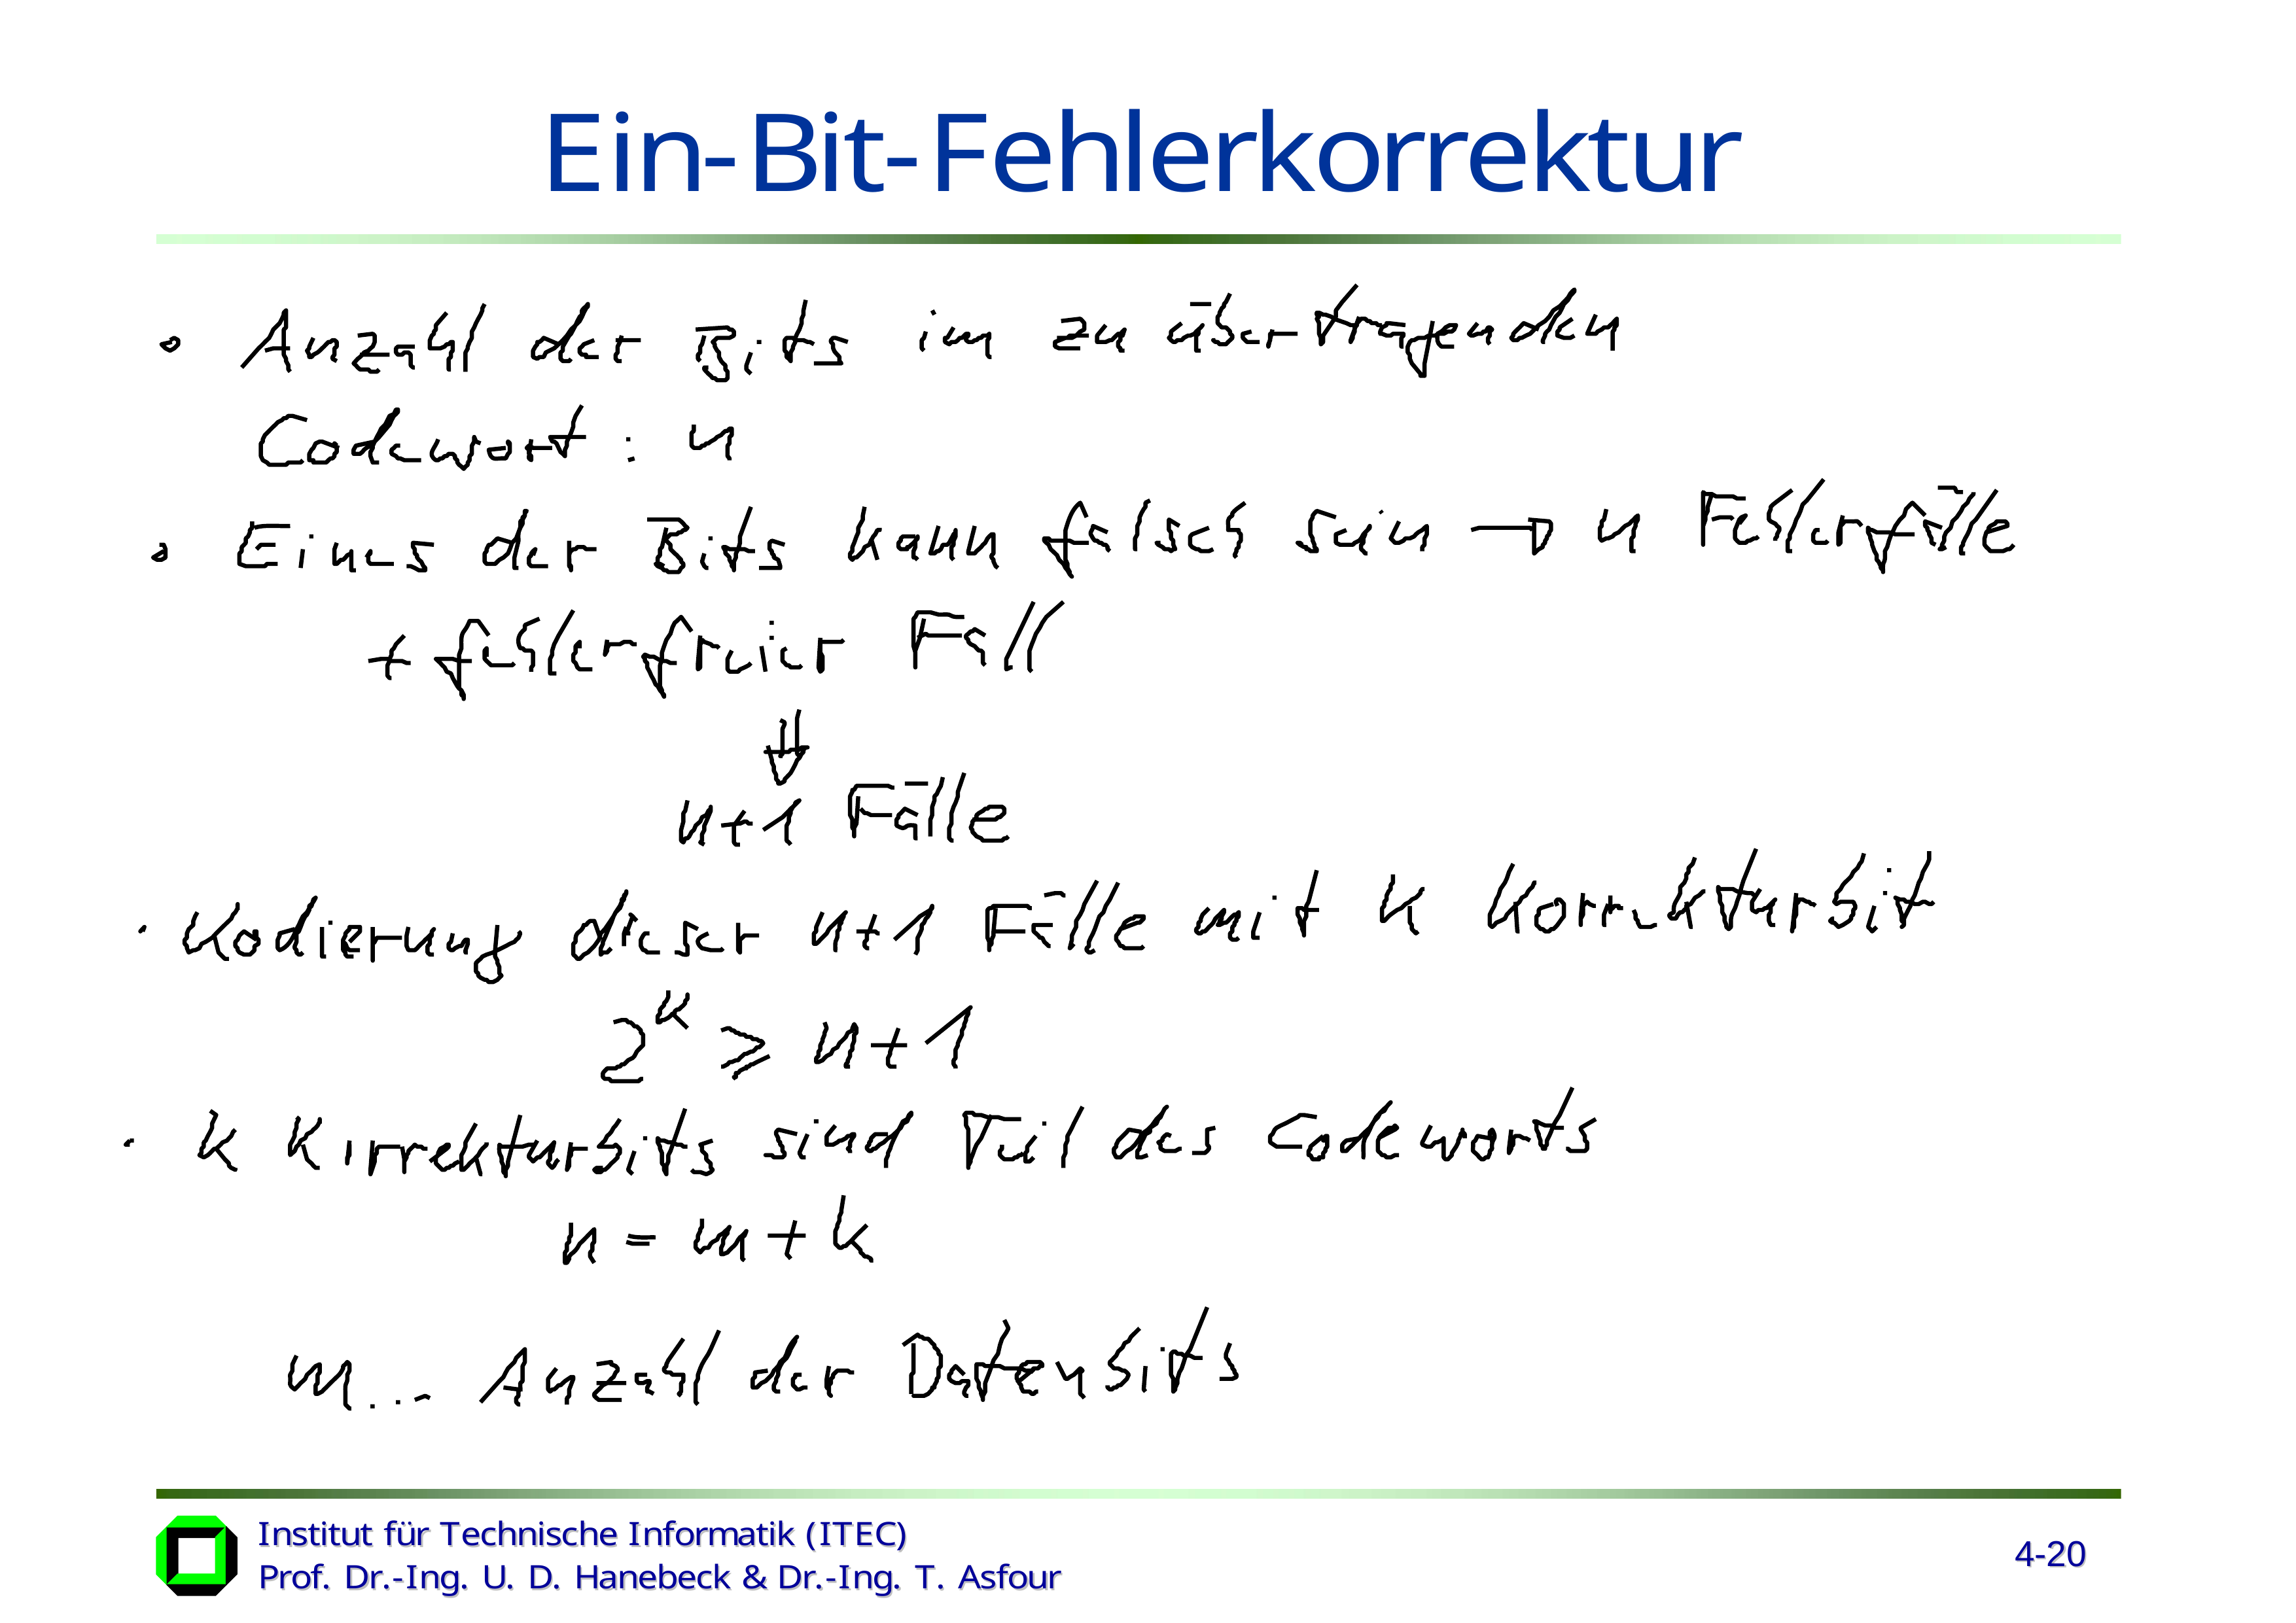 Ein-Bit-Fehlerkorrektur
• Anzahl der Bits im zu übertragenden
Codewort : n
• Eines der Bits kann falsch sein → n Fehlerfälle
+ fehlerfreier Fall
⇓
n+1 Fälle
· Kodierung dieser n+1 Fälle mit k Korrekturbit
2^k ≥ n+1
· k Kirrekturbits sind Teil des Codeworts
n = m + k
m... Anzahl der Datenbits
Institut für Technische Informatik (ITEC)
Prof. Dr.-Ing. U. D. Hanebeck & Dr.-Ing. T. Asfour
4-20